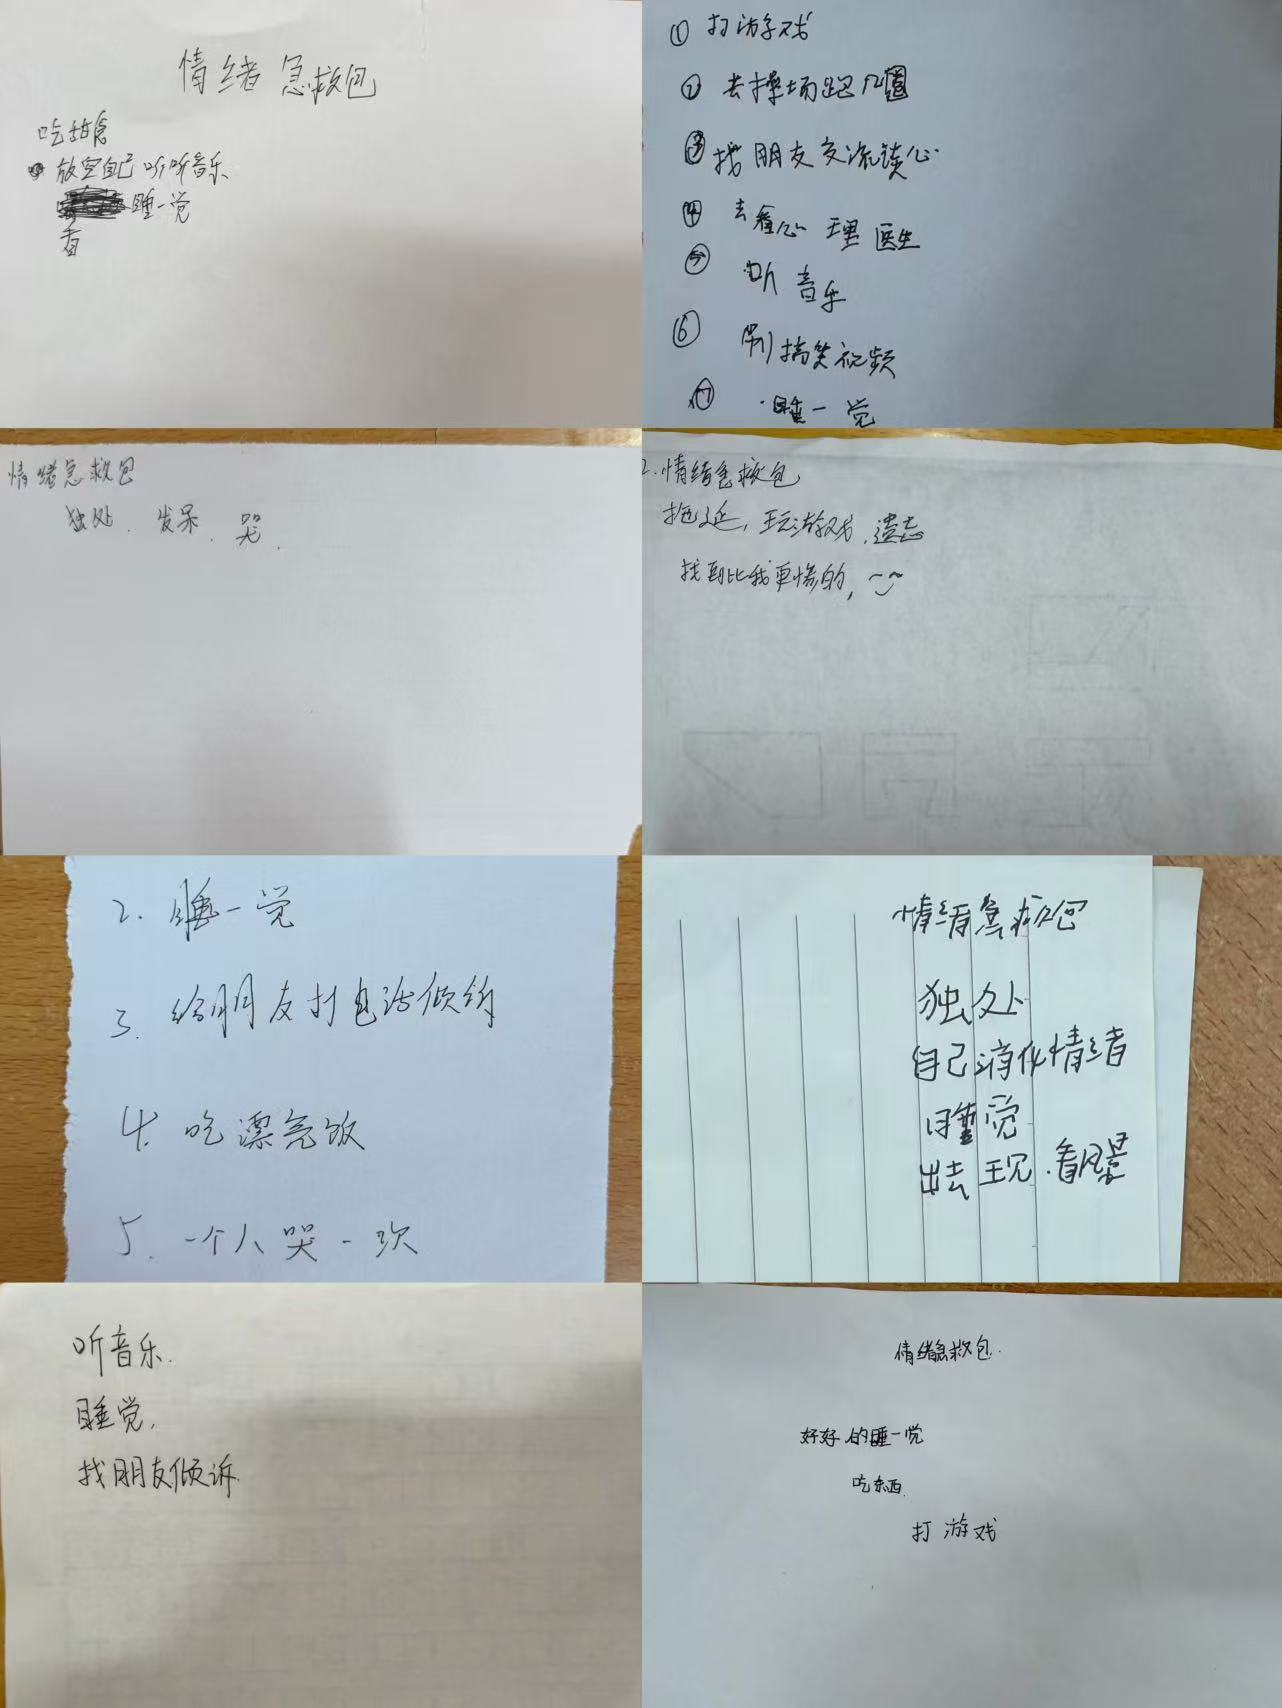 情绪急救包
吃甜食
放空自己 听听音乐
睡一觉
看
① 打游戏
② 去操场跑几圈
③ 找朋友交流谈心
④ 去看心理医生
⑤ 听音乐
⑥ 刷搞笑视频
⑦ 睡一觉
情绪急救包
独处、发呆、哭、
2.情绪急救包
拖延,玩游戏,遗忘
找到比我更惨的,
2. 睡一觉
3. 给朋友打电话倾诉
4. 吃漂亮饭
5. 一个人哭一次
情绪急救包
独处
自己消化情绪
睡觉
出去玩.看风景
听音乐.
睡觉,
找朋友倾诉.
情绪急救包.
好好的睡一觉
吃东西.
打游戏